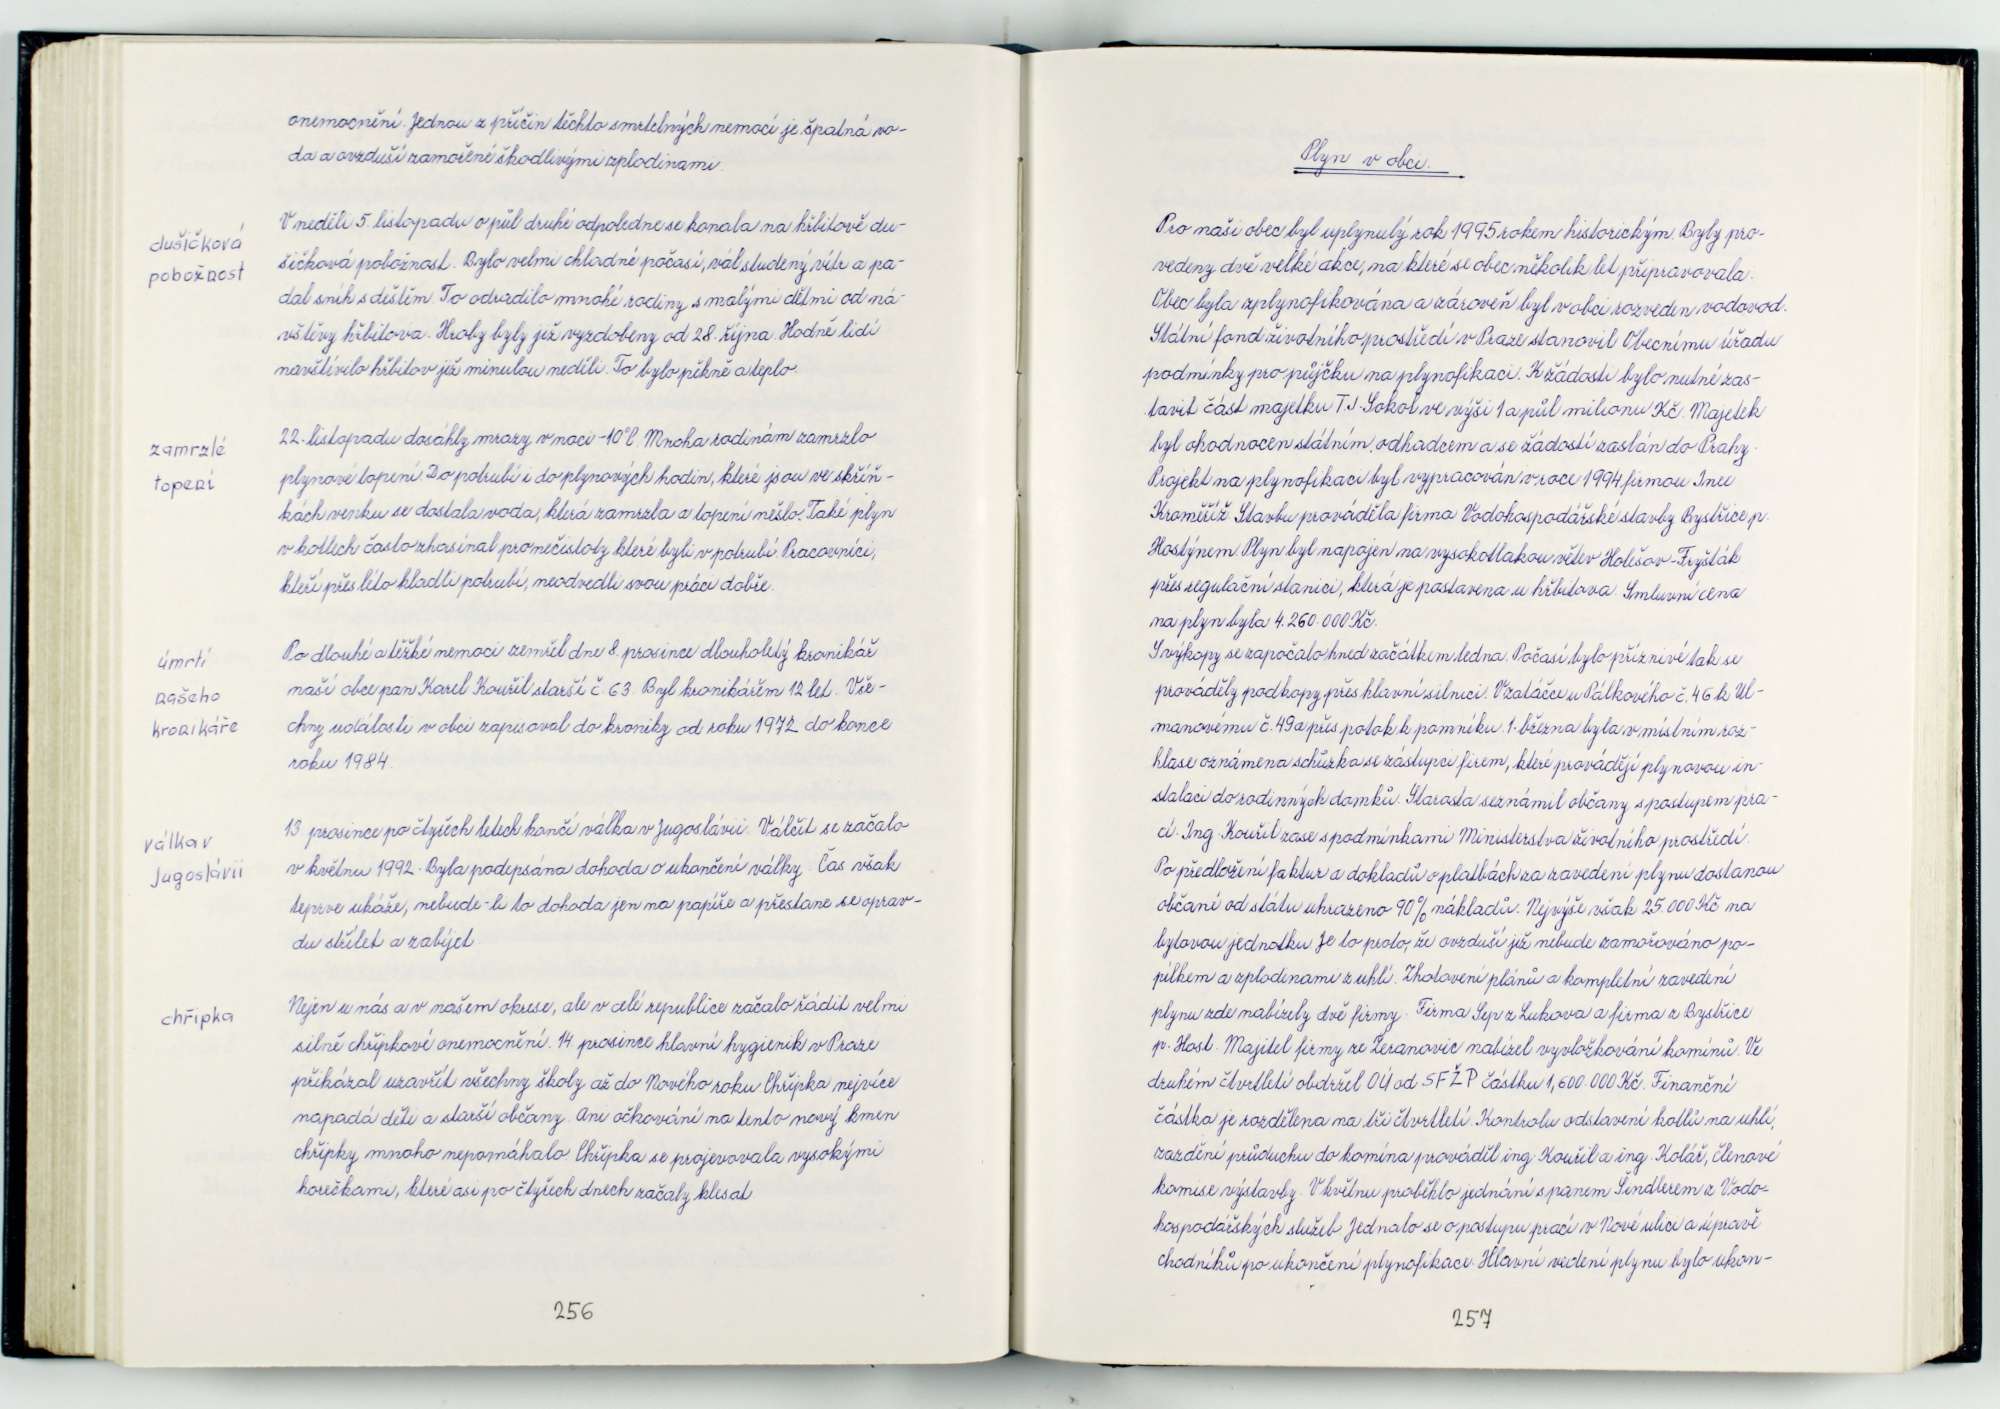 onemocnění. Jednou z příčin těchto smrtelných nemocí je špatná vo-
da a ovzduší zamořené škodlivými zplodinami.
dušičková
pobožnost
V neděli 5. listopadu o půl druhé odpoledne se konala na hřbitově du-
šičková pobožnost. Bylo velmi chladné počasí, vál studený vítr a pa-
dal sníh s deštěm. To odradilo mnohé rodiny s malými dětmi od ná-
vštěvy hřbitova. Hroby byly již vyzdobeny od 28. října. Hodně lidí
navštívilo hřbitov již minulou neděli. To bylo pěkně a teplo.
zamrzlé
topení
22. listopadu dosáhly mrazy v noci -10°C. Mnoha rodinám zamrzlo
plynové topení. Do potrubí i do plynových hodin, které jsou ve skříň-
kách venku se dostala voda, která zamrzla a topení nešlo. Také plyn
v kotlech často zhasínal pro nečistoty které byli v potrubí. Pracovníci,
kteří přes léto kladli potrubí, neodvedli svou práci dobře.
úmrtí
našeho
kronikáře
Po dlouhé a těžké nemoci zemřel dne 8. prosince dlouholetý kronikář
naší obce pan Karel Kouřil starší č. 63. Byl kronikářem 12 let. Vše-
chny události v obci zapisoval do kroniky od roku 1972 do konce
roku 1984.
válka v
Jugoslávii
13 prosince po čtyřech letech končí válka v Jugoslávii. Válčit se začalo
v květnu 1992. Byla podepsána dohoda o ukončení války. Čas však
teprve ukáže, nebude-li to dohoda jen na papíře a přestane se oprav-
du střílet a zabíjet
chřipka
Nejen u nás a v našem okrese, ale v celé republice začalo řádit velmi
silně chřipkové onemocnění. 14 prosince hlavní hygienik v Praze
přikázal uzavřít všechny školy až do Nového roku. Chřipka nejvíce
napadá děti a starší občany. Ani očkování na tento nový kmen
chřipky mnoho nepomáhalo. Chřipka se projevovala vysokými
horečkami, které asi po čtyřech dnech začaly klesat
256
Plyn v obci.
Pro naši obec byl uplynulý rok 1995 rokem historickým. Byly pro-
vedeny dvě velké akce, na které se obec několik let připravovala.
Obec byla zplynofikována a zároveň byl v obci rozveden vodovod.
Státní fond životního prostředí v Praze stanovil Obecnímu úřadu
podmínky pro půjčku na plynofikaci. K žádosti bylo nutné zas-
tavit část majetku TJ. Sokol ve výši 1 a půl milionu Kč. Majetek
byl ohodnocen státním odhadcem a se žádostí zaslán do Prahy.
Projekt na plynofikaci byl vypracován v roce 1994 firmou
Kroměříž. Stavbu prováděla firma Vodohospodářské stavby Bystřice p.
Hostýnem. Plyn byl napojen na vysokotlakou větev Holešov-Fryšták
přes regulační stanici, která je postavena u hřbitova. Smluvní cena
na plyn byla 4.260.000 Kč.
S výkopy se započalo hned začátkem ledna. Počasí bylo příznivé tak se
prováděly podkopy přes hlavní silnici. V zatáčce u Pálkového č. 46 k Ul-
manovému č. 49 a přes potok k pomníku. 1. března byla v místním roz-
hlase oznámena schůzka se zástupci firem, které provádějí plynovou in-
stalaci do rodinných domků. Starosta seznámil občany s postupem pra-
cí. Ing. Kouřil zase s podmínkami Ministerstva životního prostředí.
Po předložení faktur a dokladů o platbách za zavedení plynu dostanou
občani od státu uhrazeno 90% nákladů. Nejvýše však 25.000 Kč na
bytovou jednotku. Je to proto, že ovzduší již nebude zamořováno po-
pílkem a zplodinami z uhlí. Zhotovení plánů a kompletní zavedení
plynu zde nabízely dvě firmy. Firma Sep z Lukova a firma z Bystřice
p. Host. Majitel firmy ze Žeranovic nabízel vyvložkování komínů. Ve
druhém čtvrtletí obdržel OÚ od SFŽP částku 1,600.000 Kč. Finanční
částka je rozdělena na tři čtvrtletí. Kontrolu odstavení kotlů na uhlí,
zazdění průduchu do komína prováděl ing. Kouřil a ing. Kolář, členové
komise výstavby. V květnu proběhlo jednání s panem Šindlerem z Vodo-
hospodářských služeb. Jednalo se o postupu prací v Nové ulici a úpravě
chodníků po ukončení plynofikace. Hlavní vedení plynu bylo ukon-
257